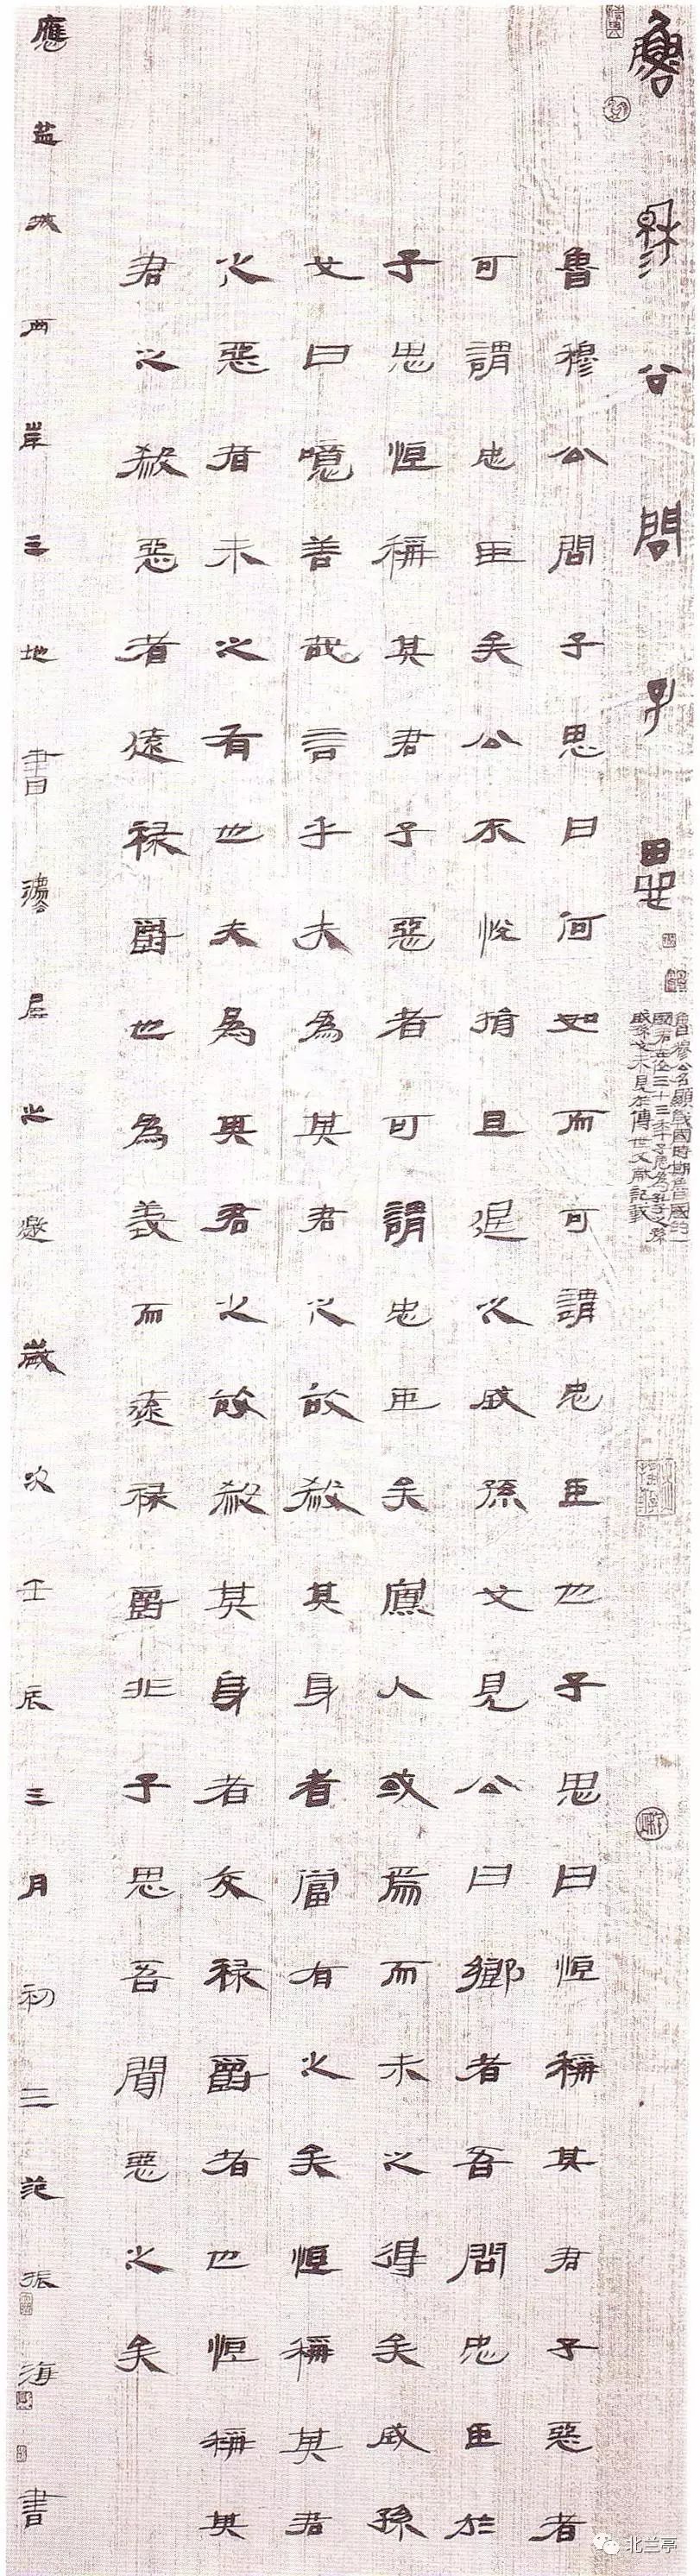 魯穆公問子思
魯穆公名顯戰國時期魯國的一
國君在位三十三年子思為孔子之孫
成孫弋未見在傳世文獻記載
魯穆公問子思曰何如而可謂忠臣也子思曰恒稱其君子惡者
可謂忠臣矣公不悅揖且退之成孫弋見公曰鄉者吾問忠臣於
子思恒稱其君子惡者可謂忠臣矣寡人或焉而未之得矣成孫
弋曰噫善哉言乎夫為其君之故殺其身者嘗有之矣恒稱其君
之惡者未之有也夫為其君之故殺其身者交祿爵者也恒稱其
君之殺惡者遠祿爵也為義而遠祿爵非子思吾聞惡之矣
應盐城两岸三地書灋展之邀歲次壬辰三月初三范振海書
北兰亭